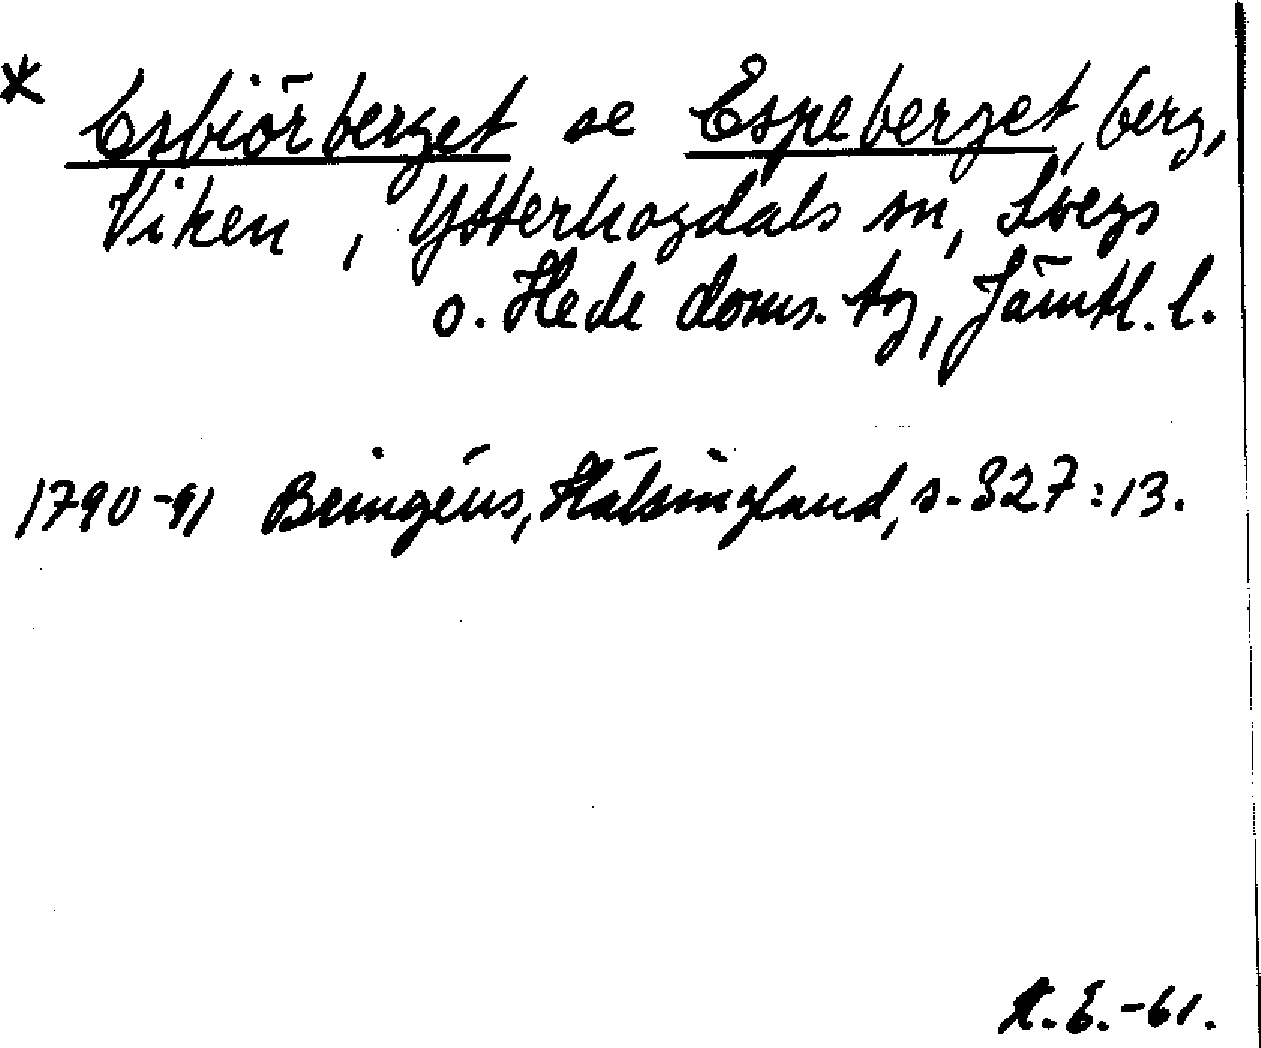 * Esbiörberget se Espeberget, berg,
Viken, Ytterhogdals sn, Svegs
o. Hede doms. tg, Jämtl. l.
1790-91 Bringéus, Hälsingland, s. 327:13.
K.E.-61.